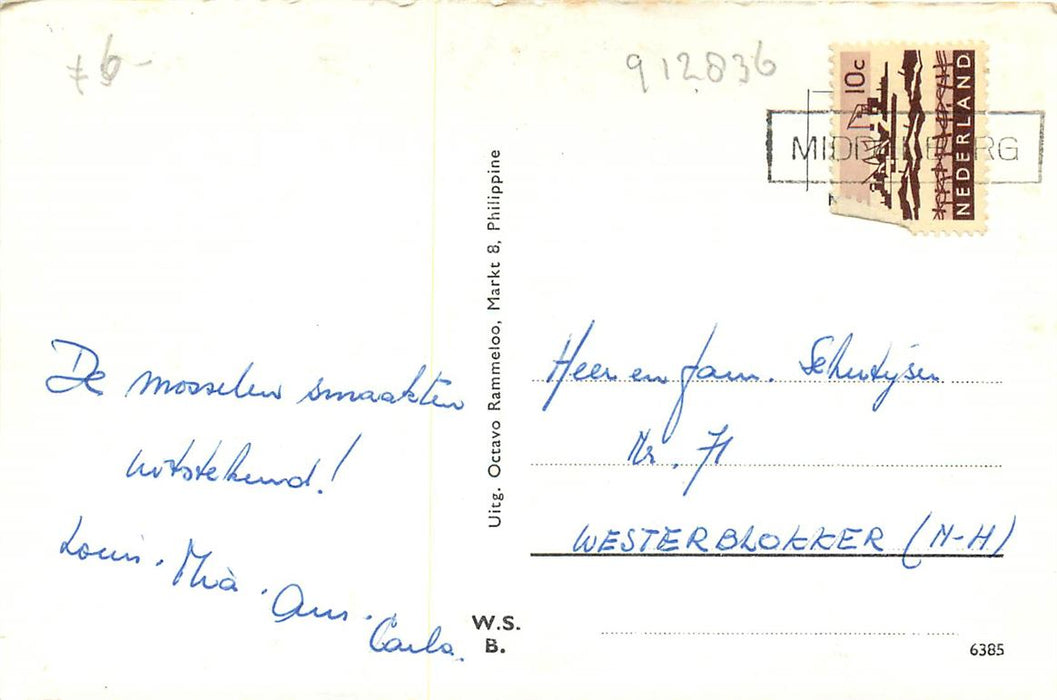 6-
912836
10c
NEDERLAND
MIDDELBURG
De mosselen smaakten
uitstekend!
Louis. Mia. Ans.
Carla.
Uitg. Octavo Rammeloo, Markt 8, Philippine
W.S.
B.
Heer en fam. Schutijser
Nr. 71
WESTERBLOKKER (N-H)
6385